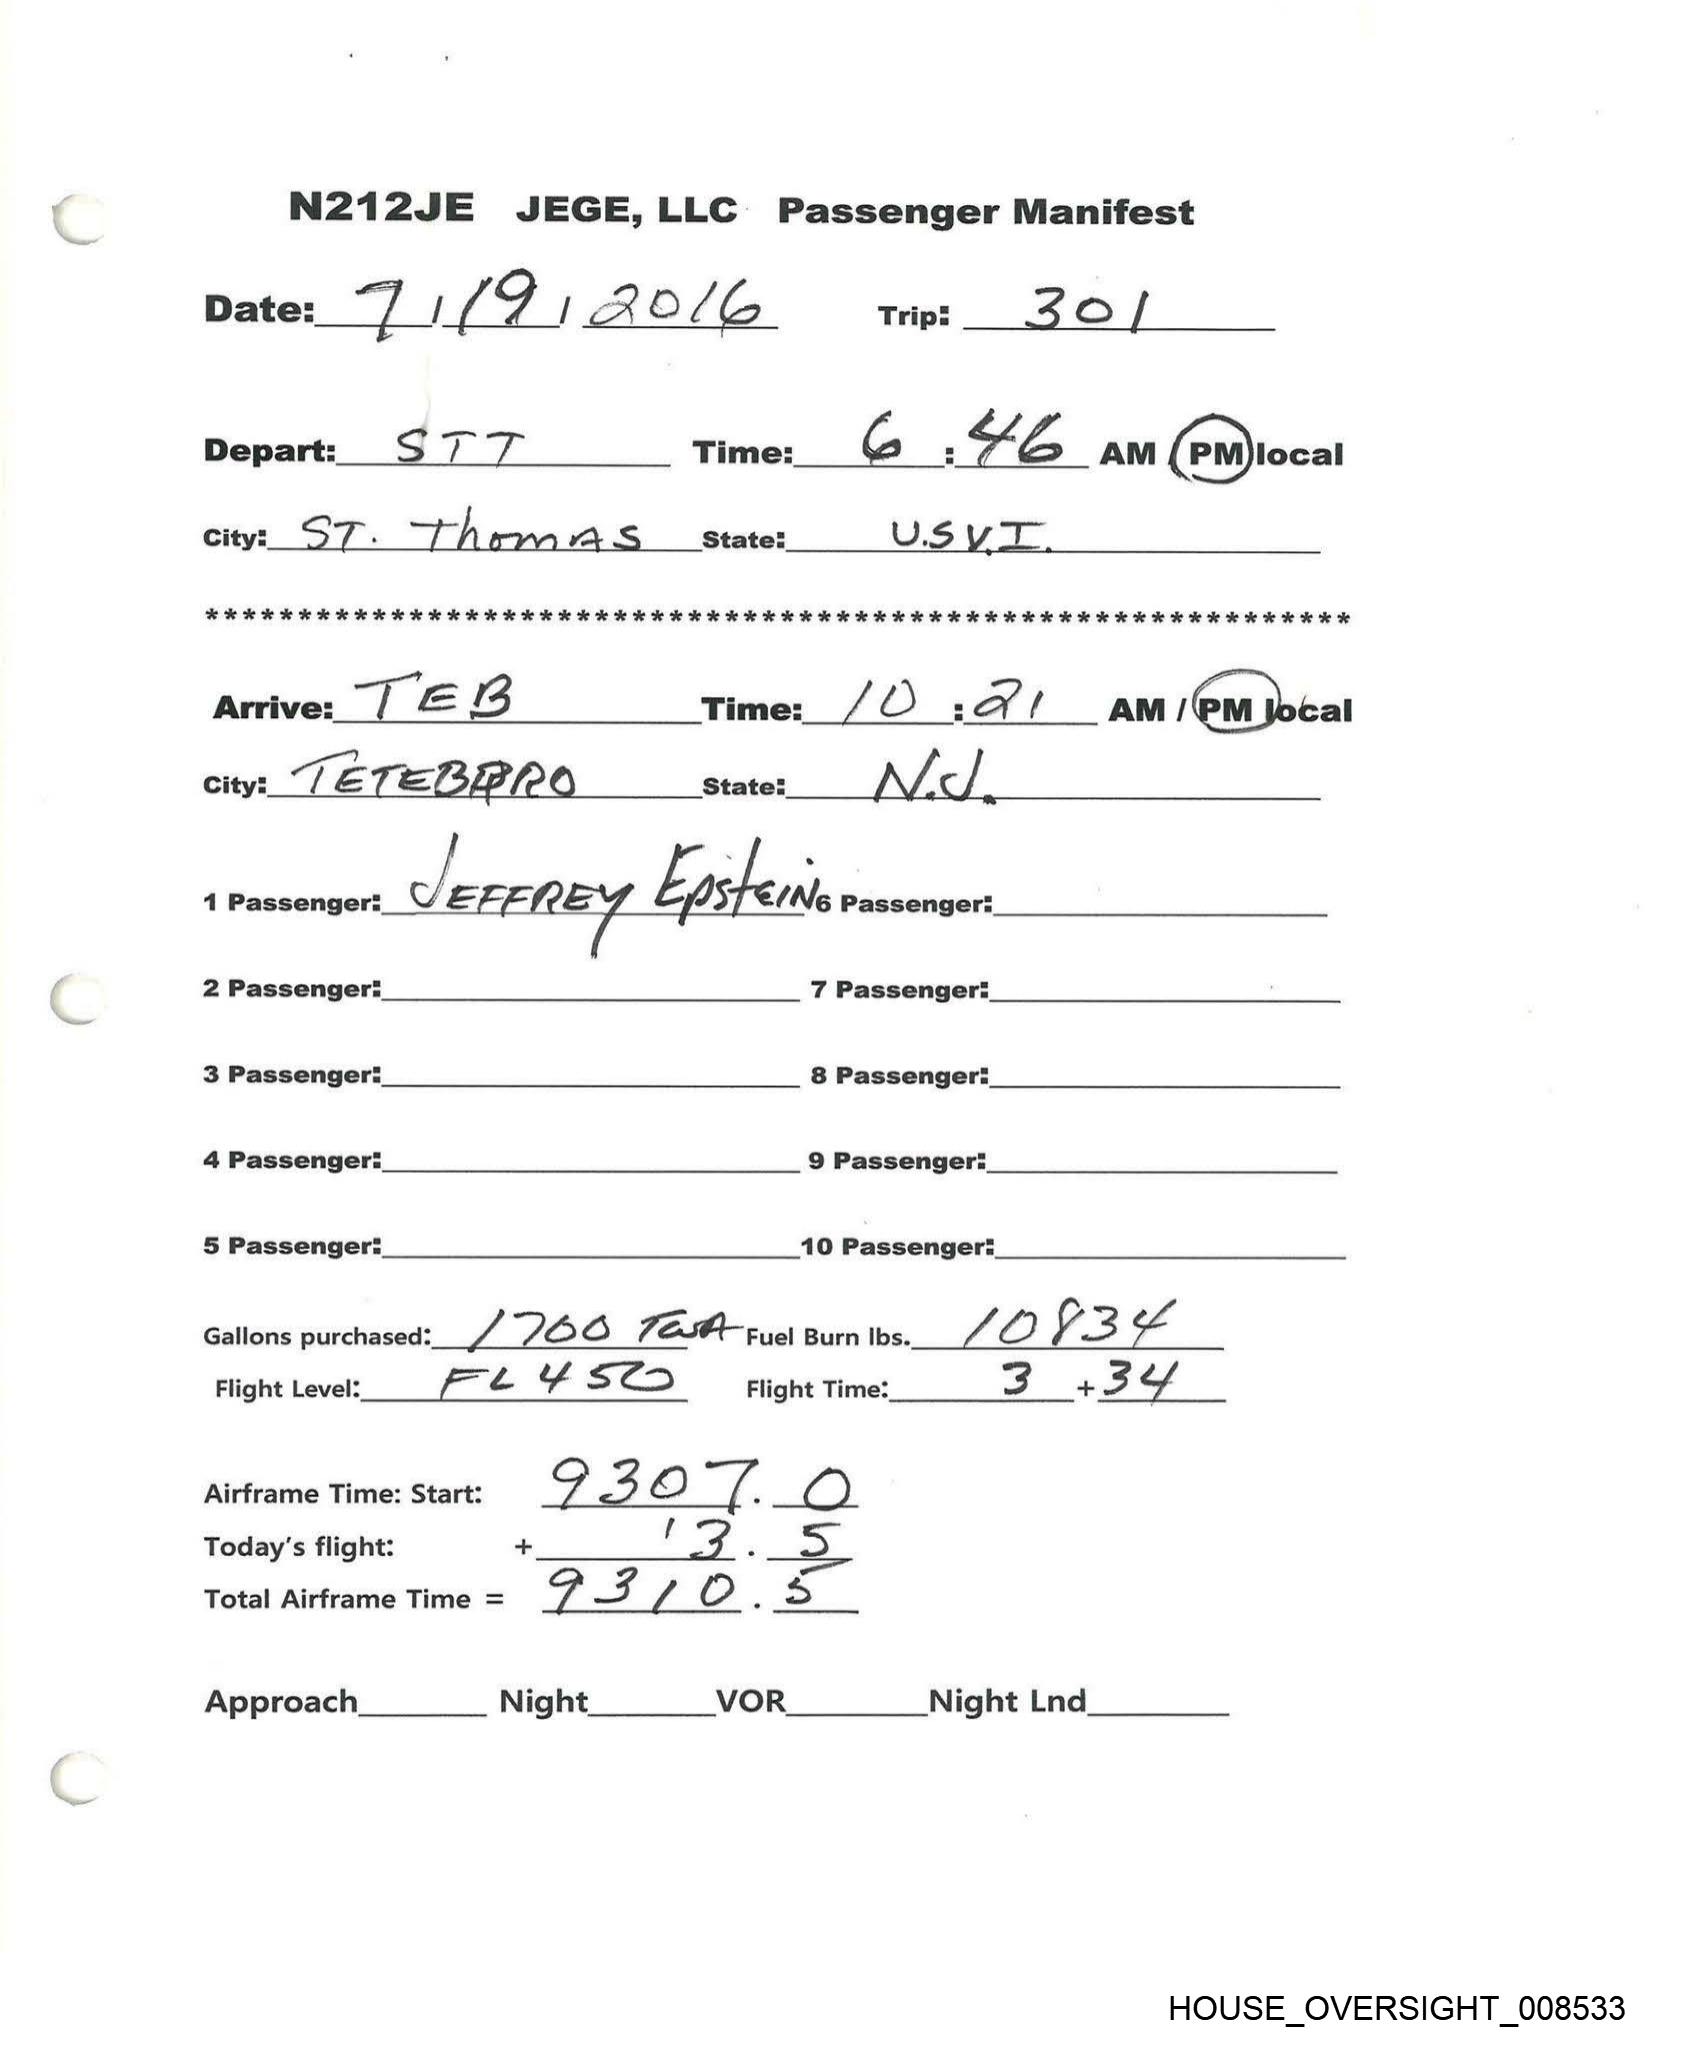 N212JE JEGE, LLC Passenger Manifest
Date: 7/19/2016 Trip: 301
Depart: STT Time: 6:46 AM / PM local
City: ST. ThomAS State: U.S.V.I.
**************************************************************
Arrive: TEB Time: 10:21 AM / PM local
City: TETEBORO State: N.J.
1 Passenger: JEFFREY EpstEIN 6 Passenger:
2 Passenger: 7 Passenger:
3 Passenger: 8 Passenger:
4 Passenger: 9 Passenger:
5 Passenger: 10 Passenger:
Gallons purchased: 1700 Fuel Burn lbs. 10834
Flight Level: FL 450 Flight Time: 3 + 34
Airframe Time: Start: 9307.0
Today's flight: + 3.5
Total Airframe Time = 9310.5
Approach Night VOR Night Lnd
HOUSE_OVERSIGHT_008533